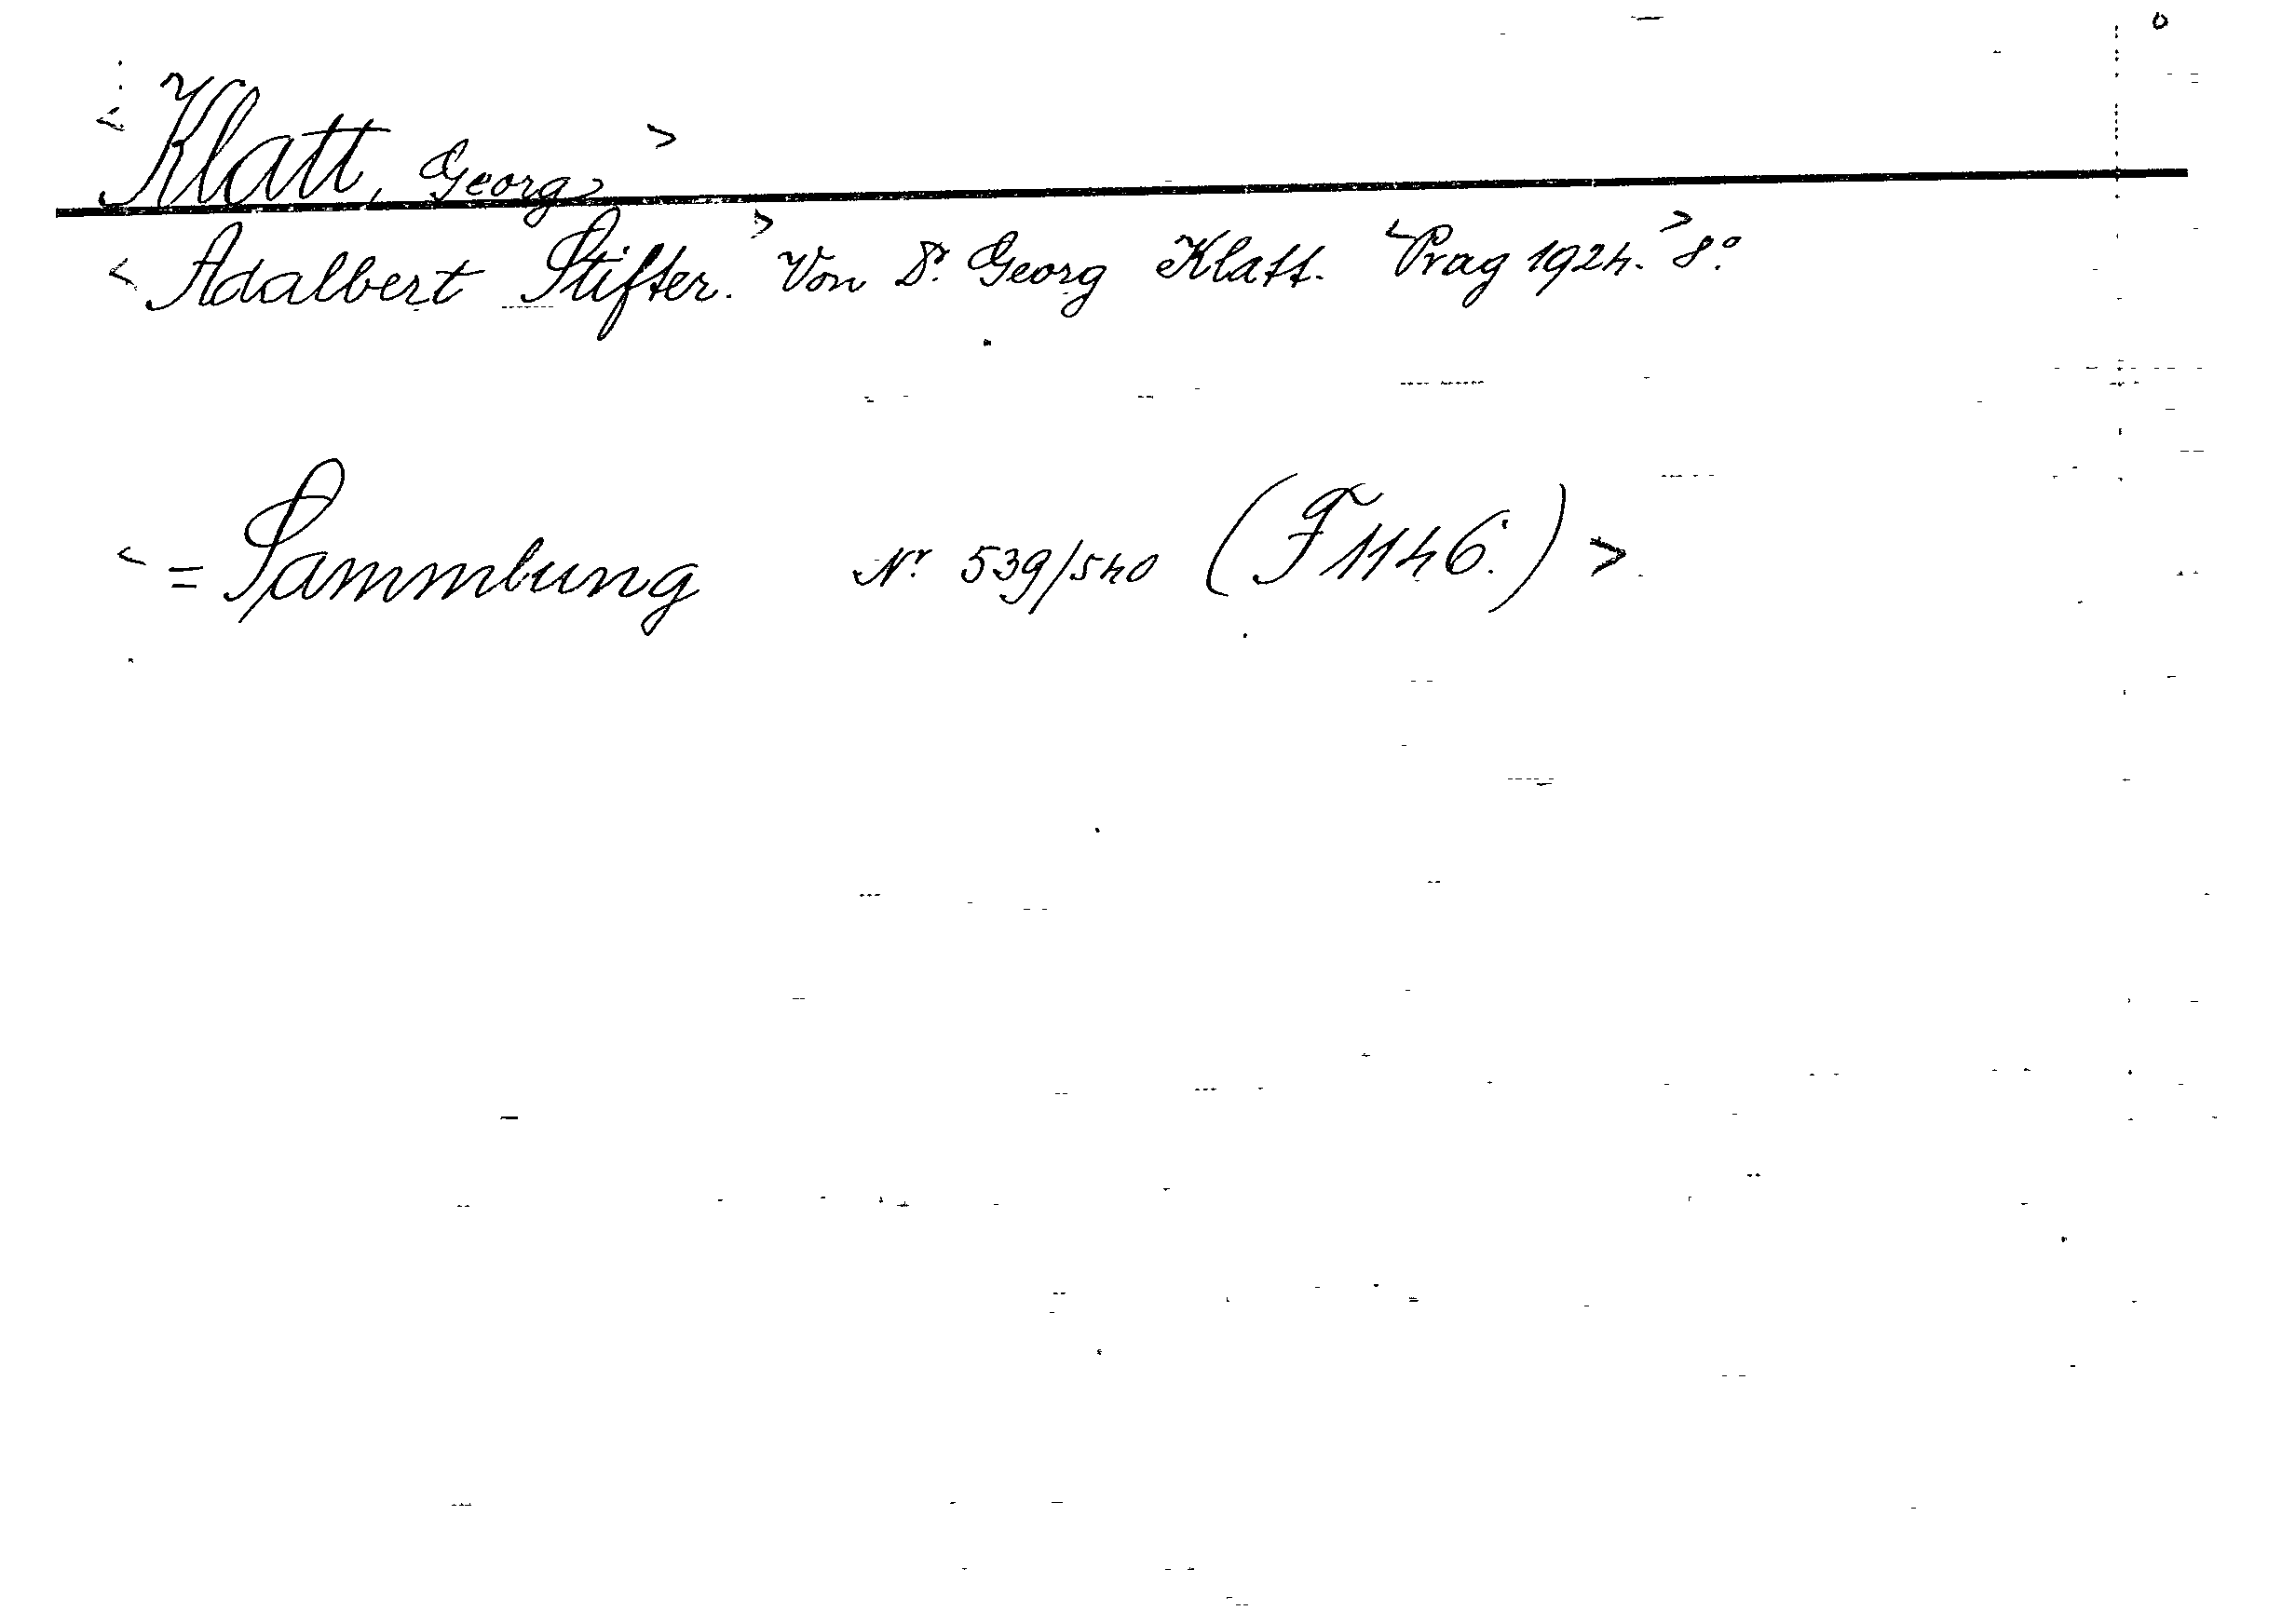 < Klatt, Georg >
< Adalbert Stifter. > Von Dr. Georg Klatt. < Prag 1924. > 8°.
< = Sammlung Nr. 539/540 (F 1146.) >